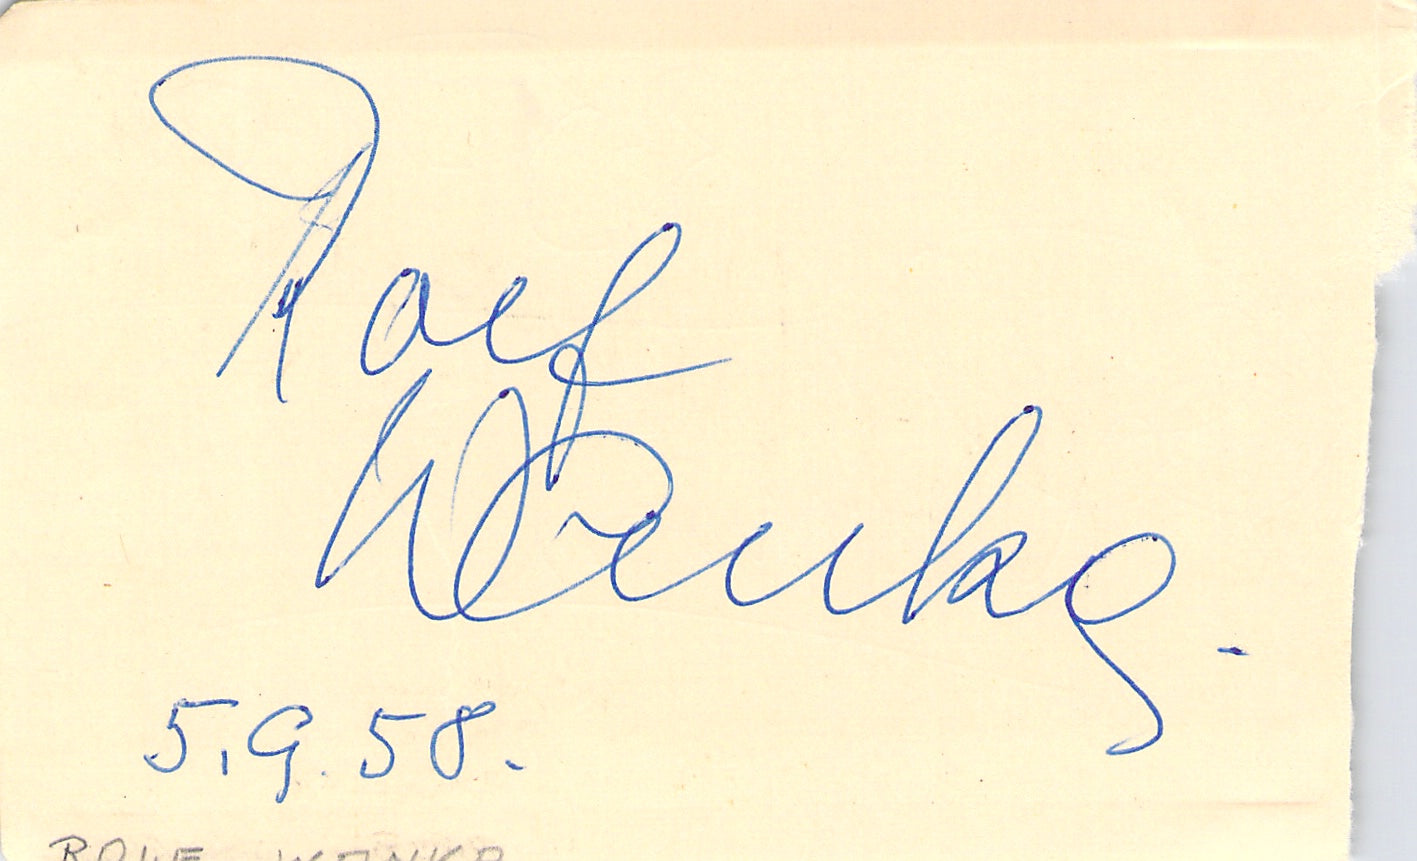 Rolf
Wanka.
5.9.58.
ROLF WANKA